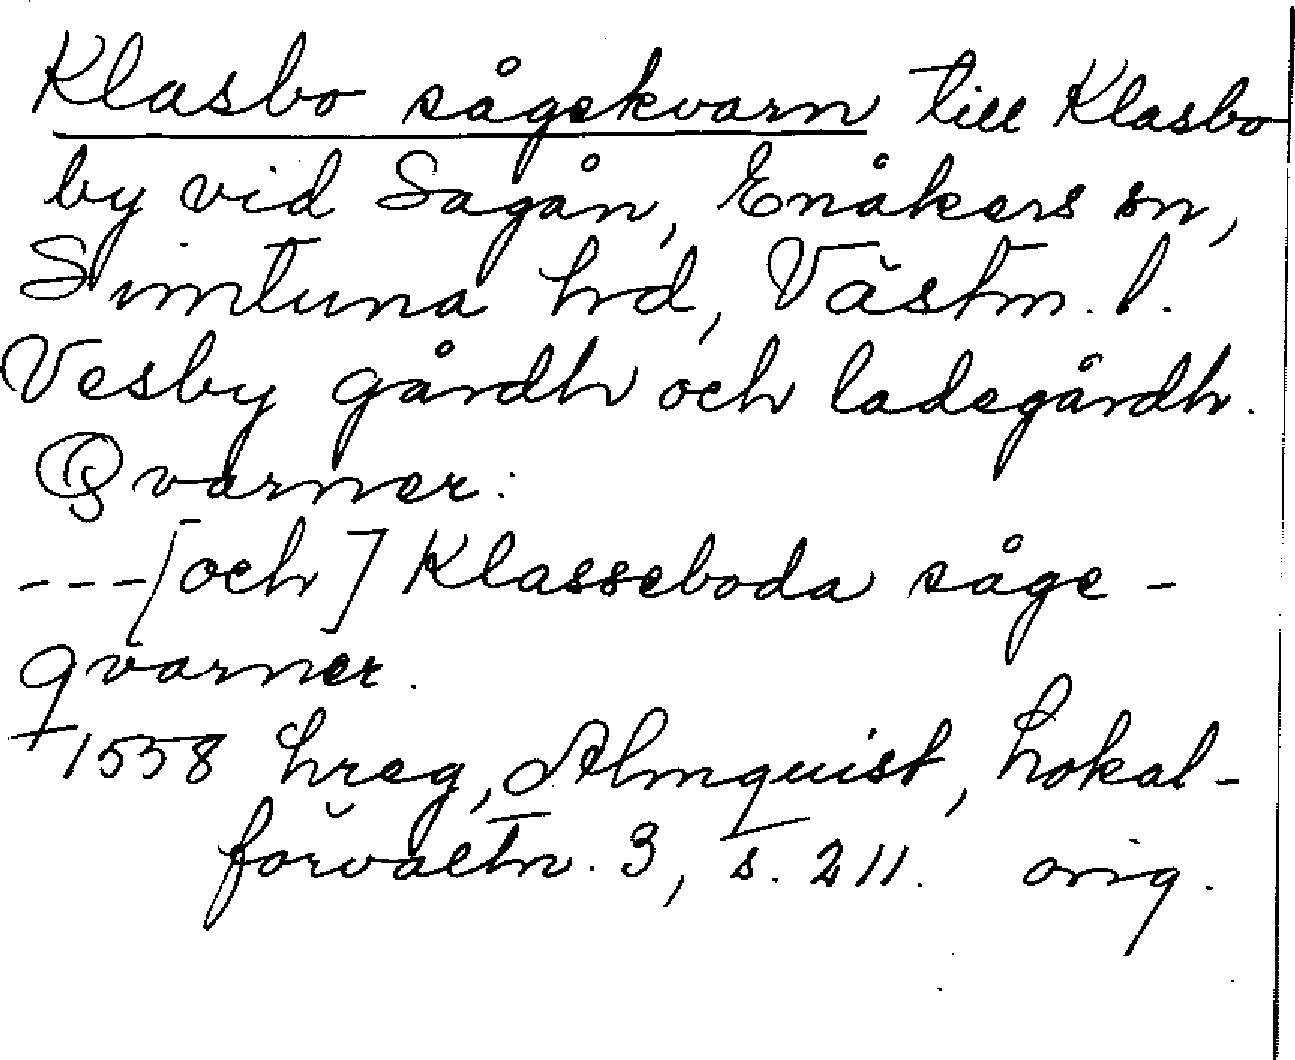 Klasbo sågekvarn till Klasbo
by vid Sagån, Enåkers sn,
Simtuna hd, Västm. l.
Vesby gårdh och ladegårdh.
Qvarner:
---[och] Klasseboda såge-
qvarner.
1558 hreg, Almquist, Lokal-
förvaltn. 3, s. 211. orig.